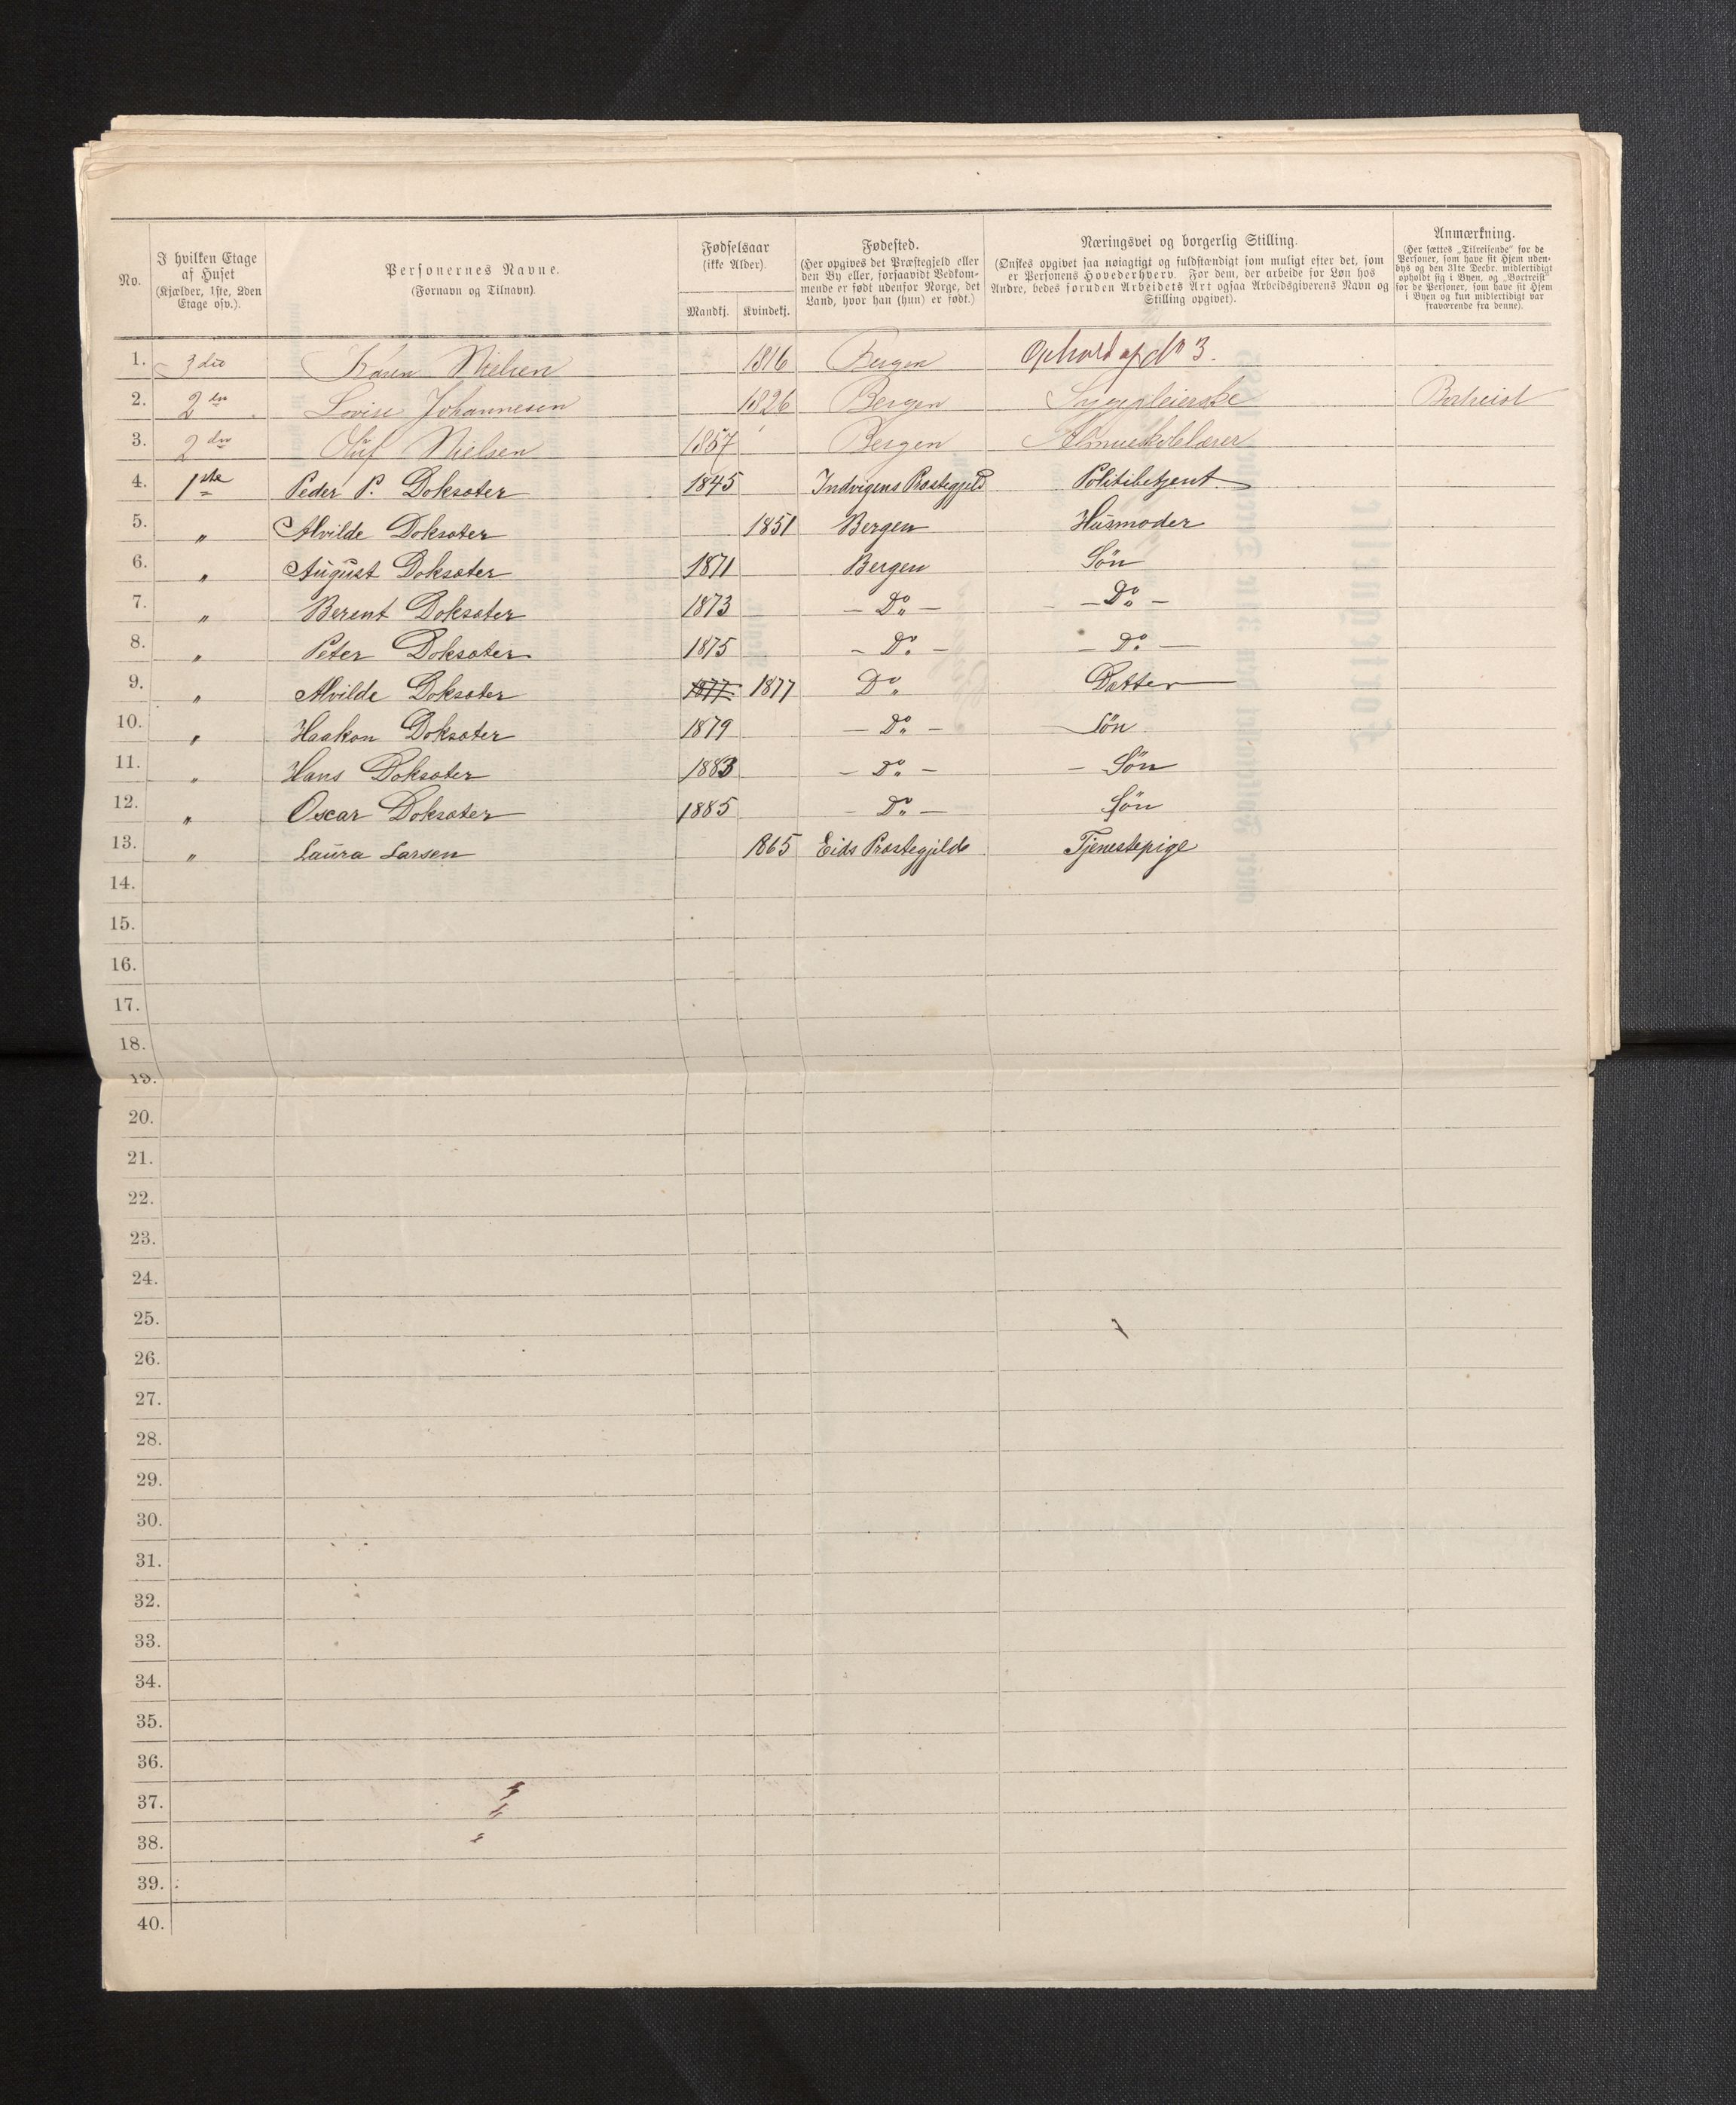 No.
I hvilken Etage af Huset (Kjælder, 1ste, 2den Etage osv.).
Personernes Navne. (Fornavn og Tilnavn).
Fødselsaar (ikke Alder). Mandkj. Kvindekj.
Fødested. (Her opgives det Præstegjeld eller den By eller, forsaavidt Vedkommende er født udenfor Norge, det Land, hvor han (hun) er født.)
Næringsvei og borgerlig Stilling. (Ønskes opgivet saa nøiagtigt og fuldstændigt som muligt efter det, som er Personens Hovederhverv. For dem, der arbeide for Løn hos Andre, bedes foruden Arbeidets Art ogsaa Arbeidsgiverens Navn og Stilling opgivet).
Anmærkning. (Her sættes „Tilreisende" for de Personer, som have sit Hjem udenbys og den 31te Decbr. midlertidigt opholdt sig i Byen, og „Bortreist" for de Personer, som have sit Hjem i Byen og kun midlertidigt var fraværende fra denne).
1. 3die Karen Nielsen 1816 Bergen 3.
2. 2den Lovise Johannesen 1826 Bergen Sygepleierske Bortreist
3. 2den Oluf Nielsen 1857 Bergen Almueskolelærer
4. 1ste Peder P. Doksæter 1845 Indvigens Præstegjeld Politibetjent
5. " Alvilde Doksæter 1851 Bergen Husmoder
6. " August Doksæter 1871 Bergen Søn
7. " Berent Doksæter 1873 – Do – – Do –
8. " Peter Doksæter 1875 – Do – – Do –
9. " Alvilde Doksæter 1877 1877 Do Datter
10. " Haakon Doksæter 1879 – Do – Søn
11. " Hans Doksæter 1883 – Do – – Søn
12. " Oscar Doksæter 1885 – Do – Søn
13. " Laura Larsen 1865 Eids Præstegjeld Tjenestepige
14.
15.
16.
17.
18.
19.
20.
21.
22.
23.
24.
25.
26.
27.
28.
29.
30.
31.
32.
33.
34.
35.
36.
37.
38.
39.
40.